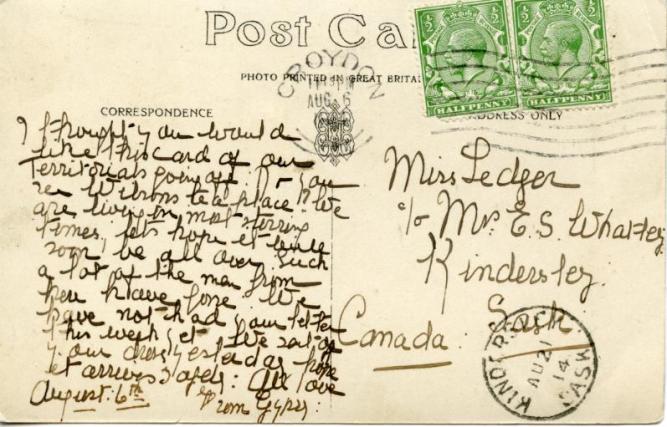 Post Ca
PHOTO PRINTED IN GREAT BRITAI
½ ½ ½ ½
HALFPENNY HALFPENNY
CROYDON
AUG 6
CORRESPONDENCE
ADDRESS ONLY
I thought you would
like this card of our
Territorials going off.
Wilsons tea place. We
are living in most stirring
times, lets hope it will
soon be all over. Such
a lot of the men from
here have gone. We
have not had your letter
this week yet. We sent
your yesterday hope
it arrives safely. All love
August: 6th From Gypsy:
Miss Ledger
c/o Mrs E. S. Whatley
Kindersley
Sask
Canada
KINDERSLEY
AU 21
14
SASK